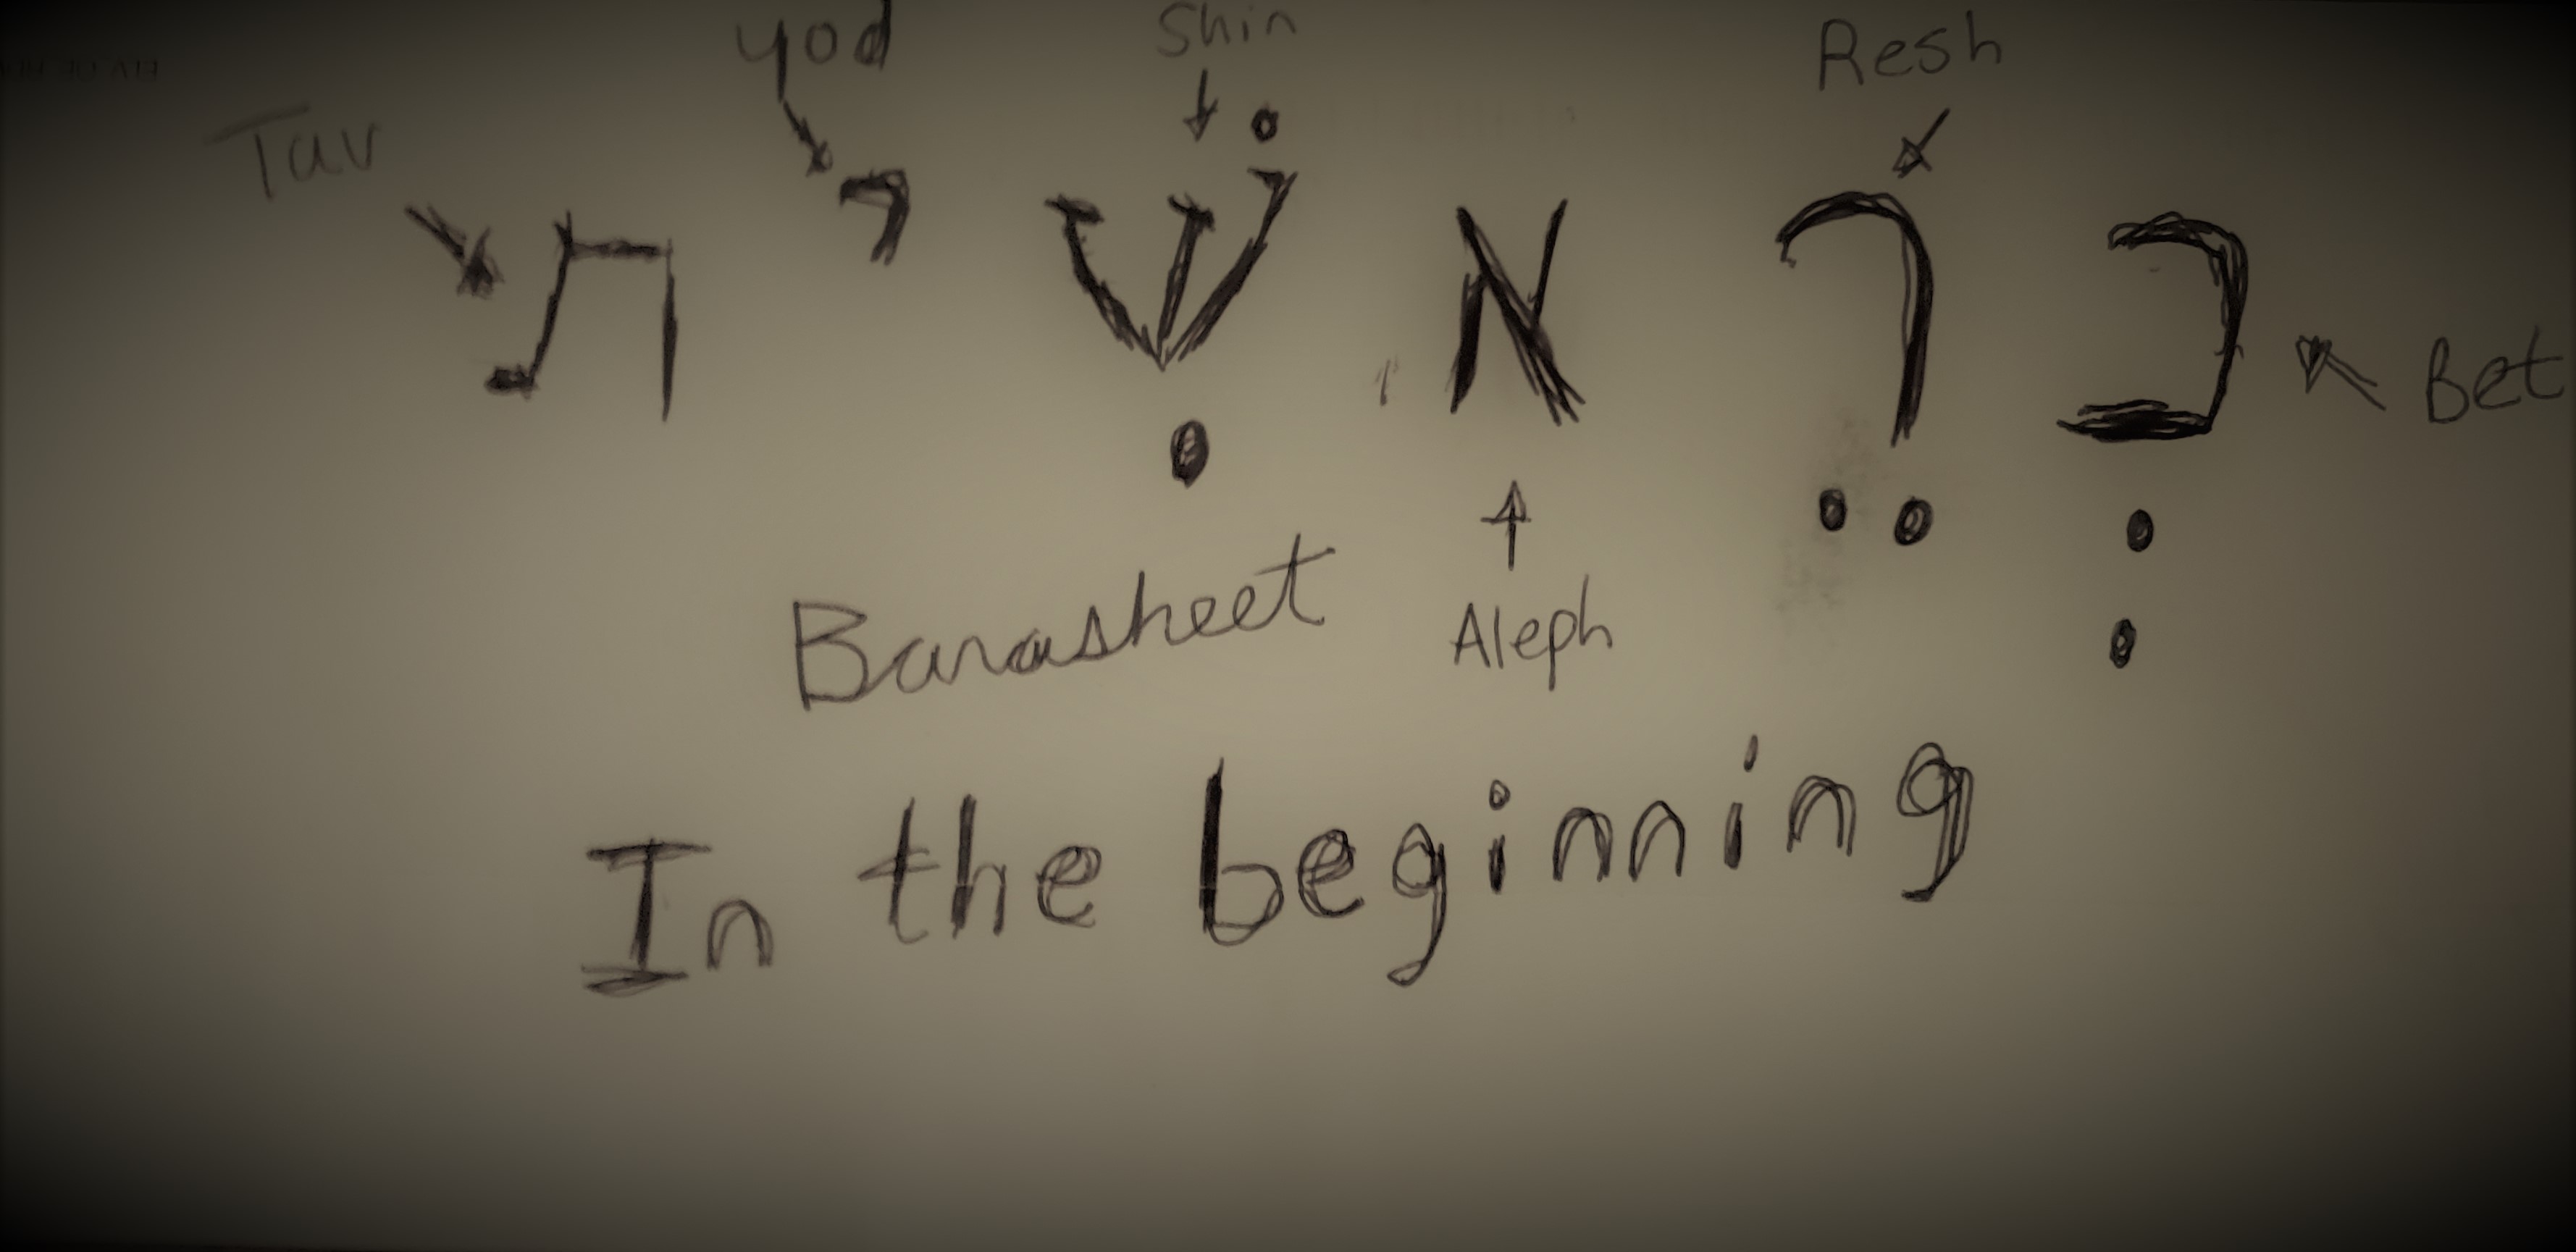 yod
Shin
Resh
Tav
בְרֵאשִׁית
Bet
Aleph
Barasheet
In the beginning